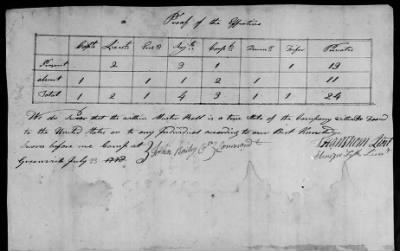 Proof of the Effectives
Capts Lieuts Ens Serjts Corpls Drums Fifes Privates
Present 2 3 1 1 13
absent 1 1 1 2 1 11
Total 1 2 1 4 3 1 1 24
We do swear that the within Muster Roll is a true State of the Company without Fraud
to the United States or to any Individual according to our Best Knowledge
Sworn before me Camp at
Greenwich July 23 1778 John Bailey Commandt
Lieut